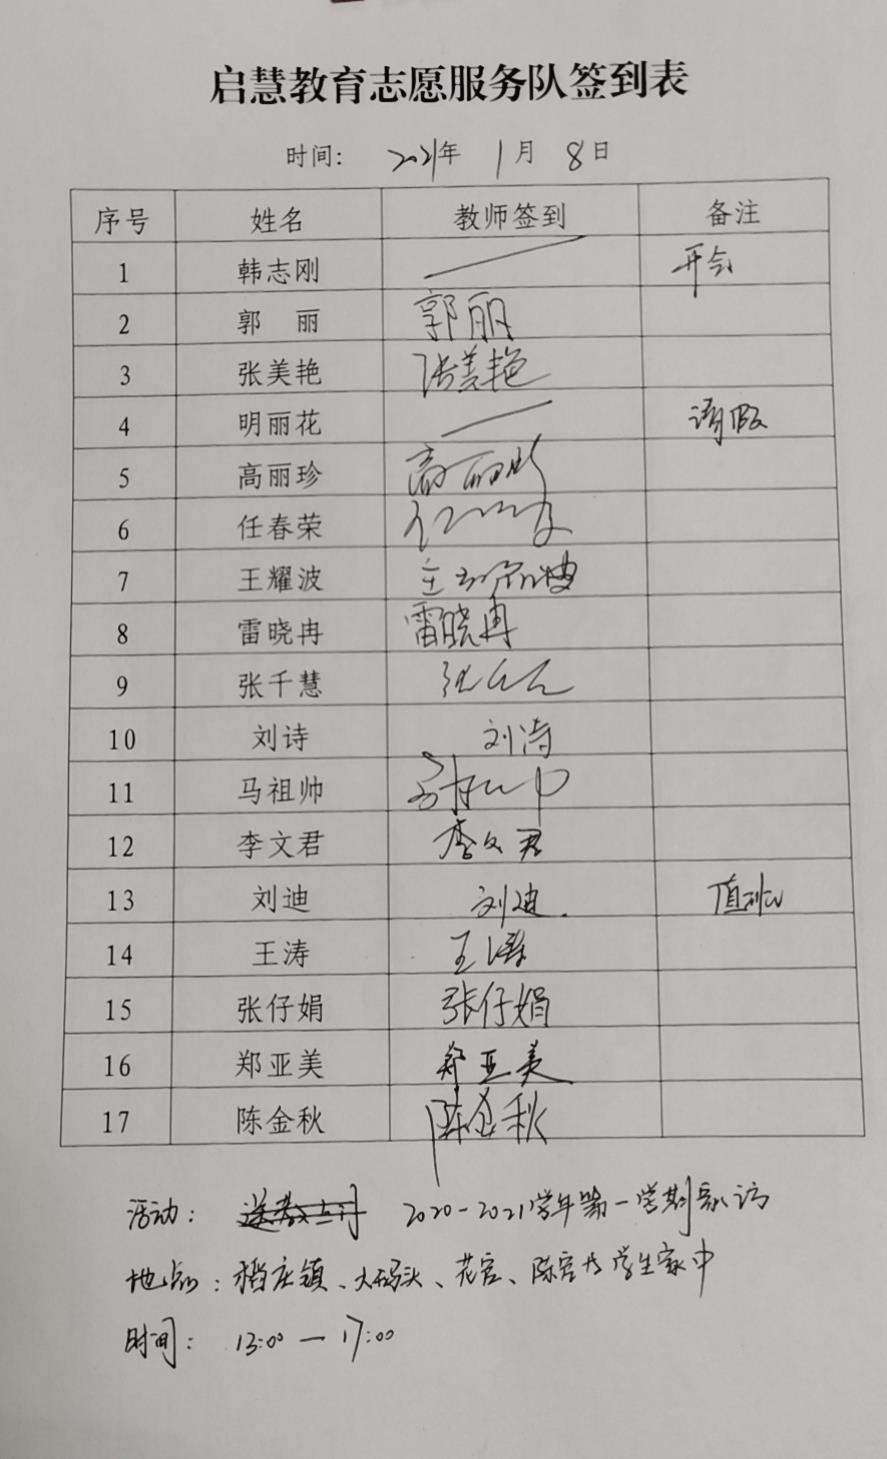 启慧教育志愿服务队签到表
时间: 2021年 1月 8日
序号 姓名 教师签到 备注
1 韩志刚 开会
2 郭 丽 郭丽
3 张美艳 张美艳
4 明丽花 请假
5 高丽珍 高丽珍
6 任春荣
7 王耀波 王
8 雷晓冉 雷晓冉
9 张千慧 张
10 刘诗 刘诗
11 马祖帅
12 李文君 李文君
13 刘迪 刘迪. 值班
14 王涛 王涛
15 张仔娟 张仔娟
16 郑亚美 郑亚美
17 陈金秋 陈金秋
活动: 2020-2021学年第一学期家访
地点: 稻庄镇、大码头、花官、陈官乡学生家中
时间: 13:00—17:00